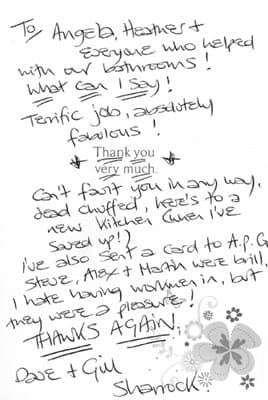 To Angela, Heather +
everyone who helped
with our bathrooms!
What can I say!
Terrific job, absolutely
fabulous!
Thank you
very much.
Can't fault you in any way,
dead chuffed, here's to a
new kitchen (when I've
saved up!)
I've also sent a card to A.P.G
Steve, Alex + Martin were brill,
I hate having workmen in, but
they were a pleasure!
THANKS AGAIN,
Dave + Gill
Sharrock.